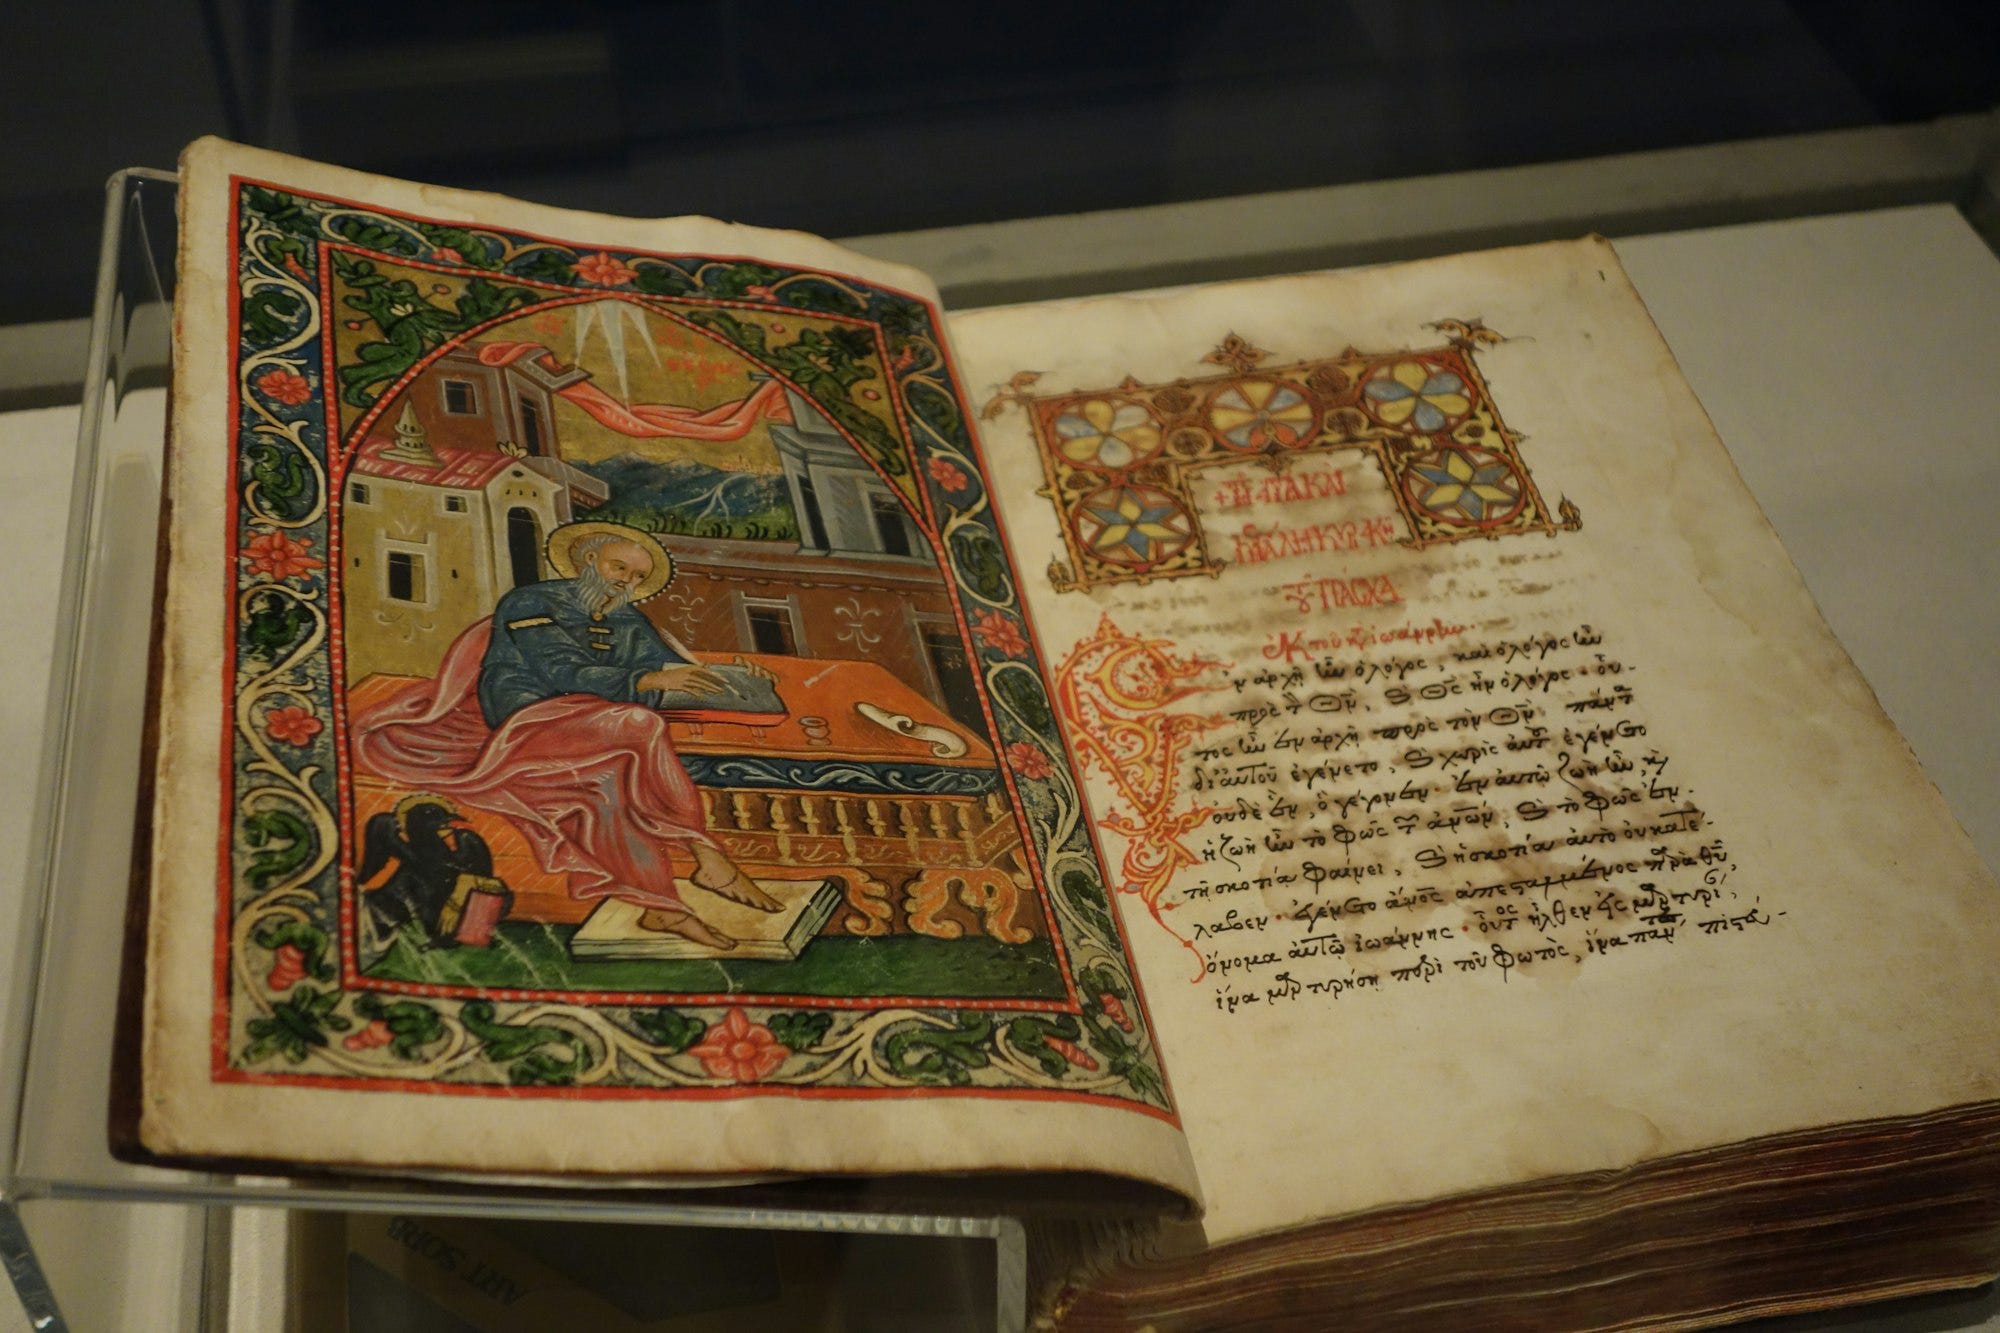 +ΤΗ ΑΓΙΑ ΚΑΙ
ΜΕΓΑΛΗ ΚΥΡΙΑΚΗ
ΤΟΥ ΠΑΣΧΑ
ἐκ τοῦ κ ἰωάννην.
Ἐν ἀρχῇ ἦν ὁ λόγος, καὶ ὁ λόγος ἦν
πρὸς τ Θν̅, ϗ Θς̅ ἦν ὁ λόγος· οὗ-
τος ἦν ἐν ἀρχῇ πρὸς τὸν Θν̅ πάντ
δι' αὐτοῦ ἐγένετο, ϗ χωρὶς αὐτ ἐγένετο
οὐδὲ ἕν, ὃ γέγονεν· ἐν αὐτῷ ζωὴ ἦν, ϗ
ἡ ζωὴ ἦν τὸ φῶς τ ἀνω̅ν, ϗ τὸ φῶς ἐν
τῇ σκοτίᾳ φαίνει, ϗ ἡ σκοτία αὐτὸ οὐ κατέ-
λαβεν· ἐγένετο ἄνο̅ς ἀπεσταλμένος παρὰ θυ̅,
ὄνομα αὐτῷ ἰωάννης· οὗτος ἦλθεν εἰς μαρτυρί,
ἵνα μαρτυρήσῃ περὶ τοῦ φωτὸς, ἵνα πάντες πιστεύ-
ART SORB